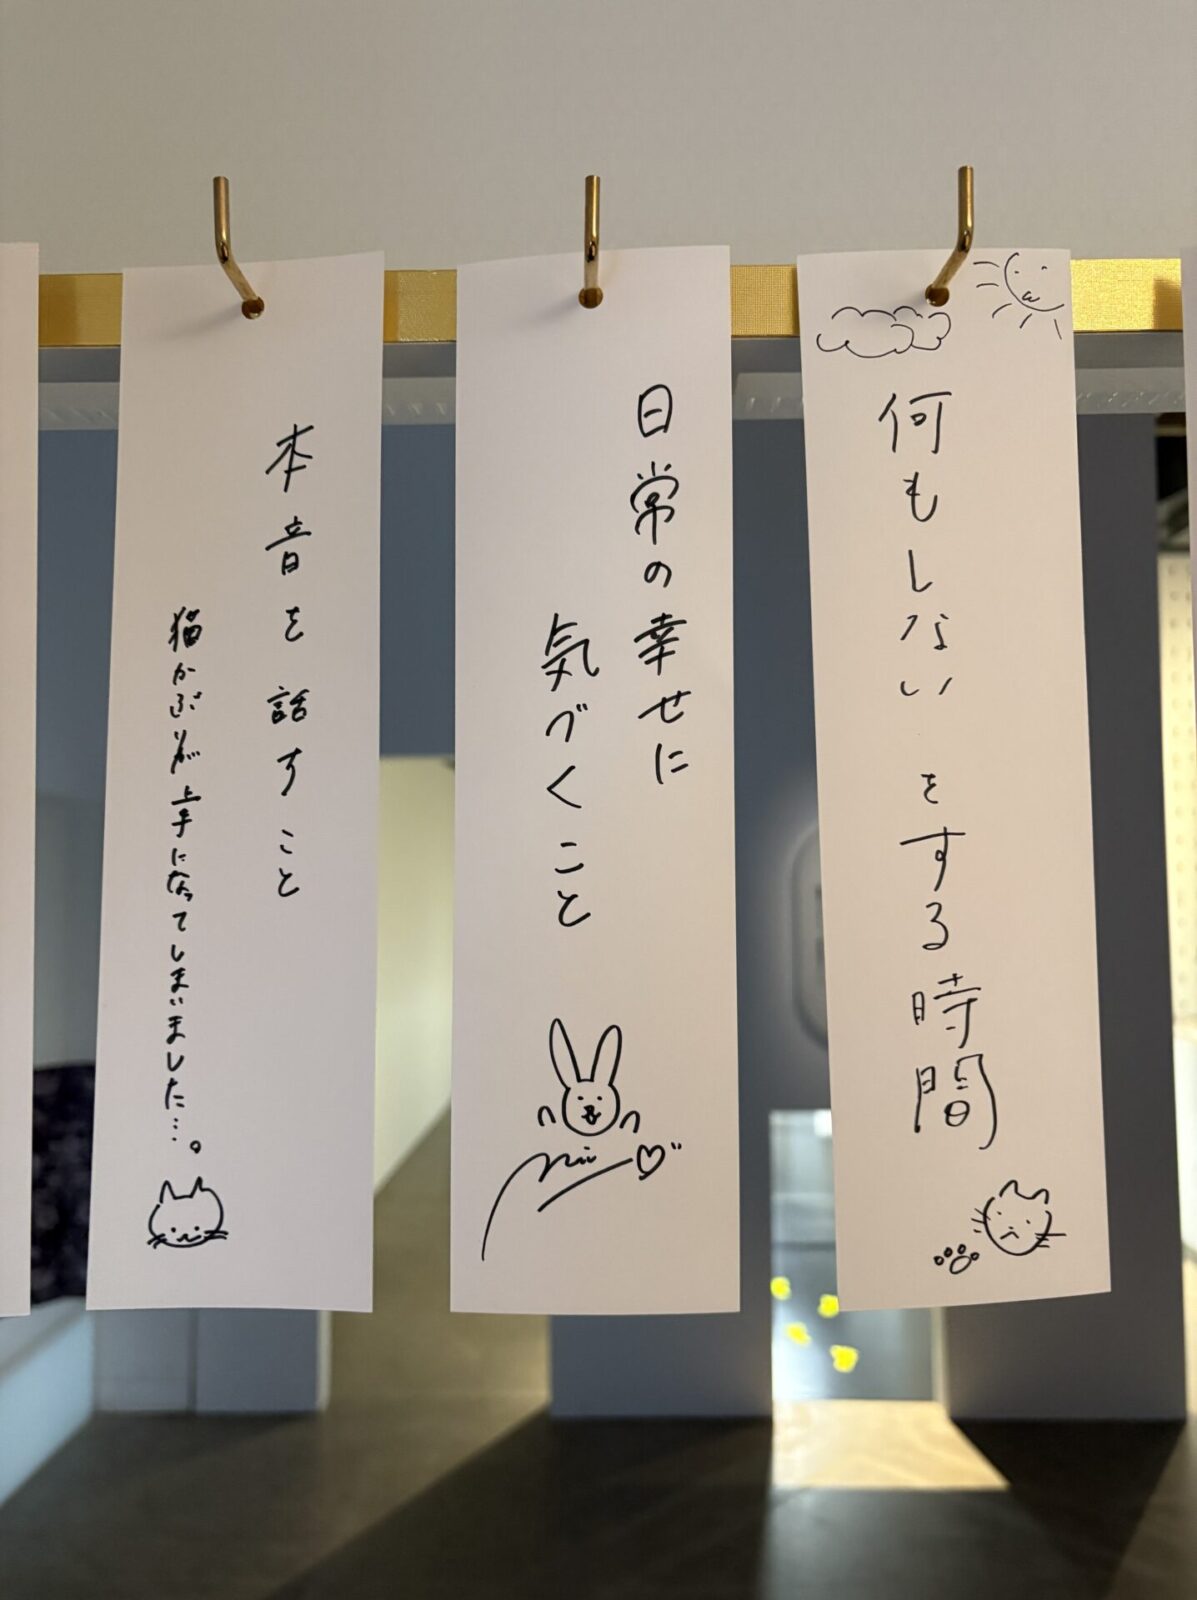 何もしない をする時間
日常の幸せに
気づくこと
本音を話すこと
猫かぶりが上手になってしまいました…。